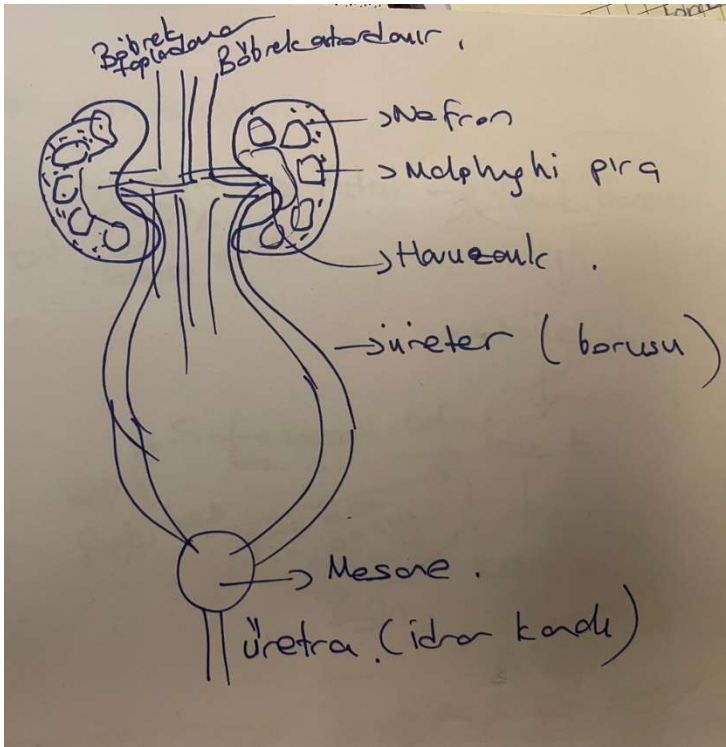 Böbrek Böbrek atardamır.
topladamar
→ Nefron
→ Malphighi pira
→ Havuzcuk.
→ üreter (borusu)
→ Mesane.
üretra. (idrar kanalı)